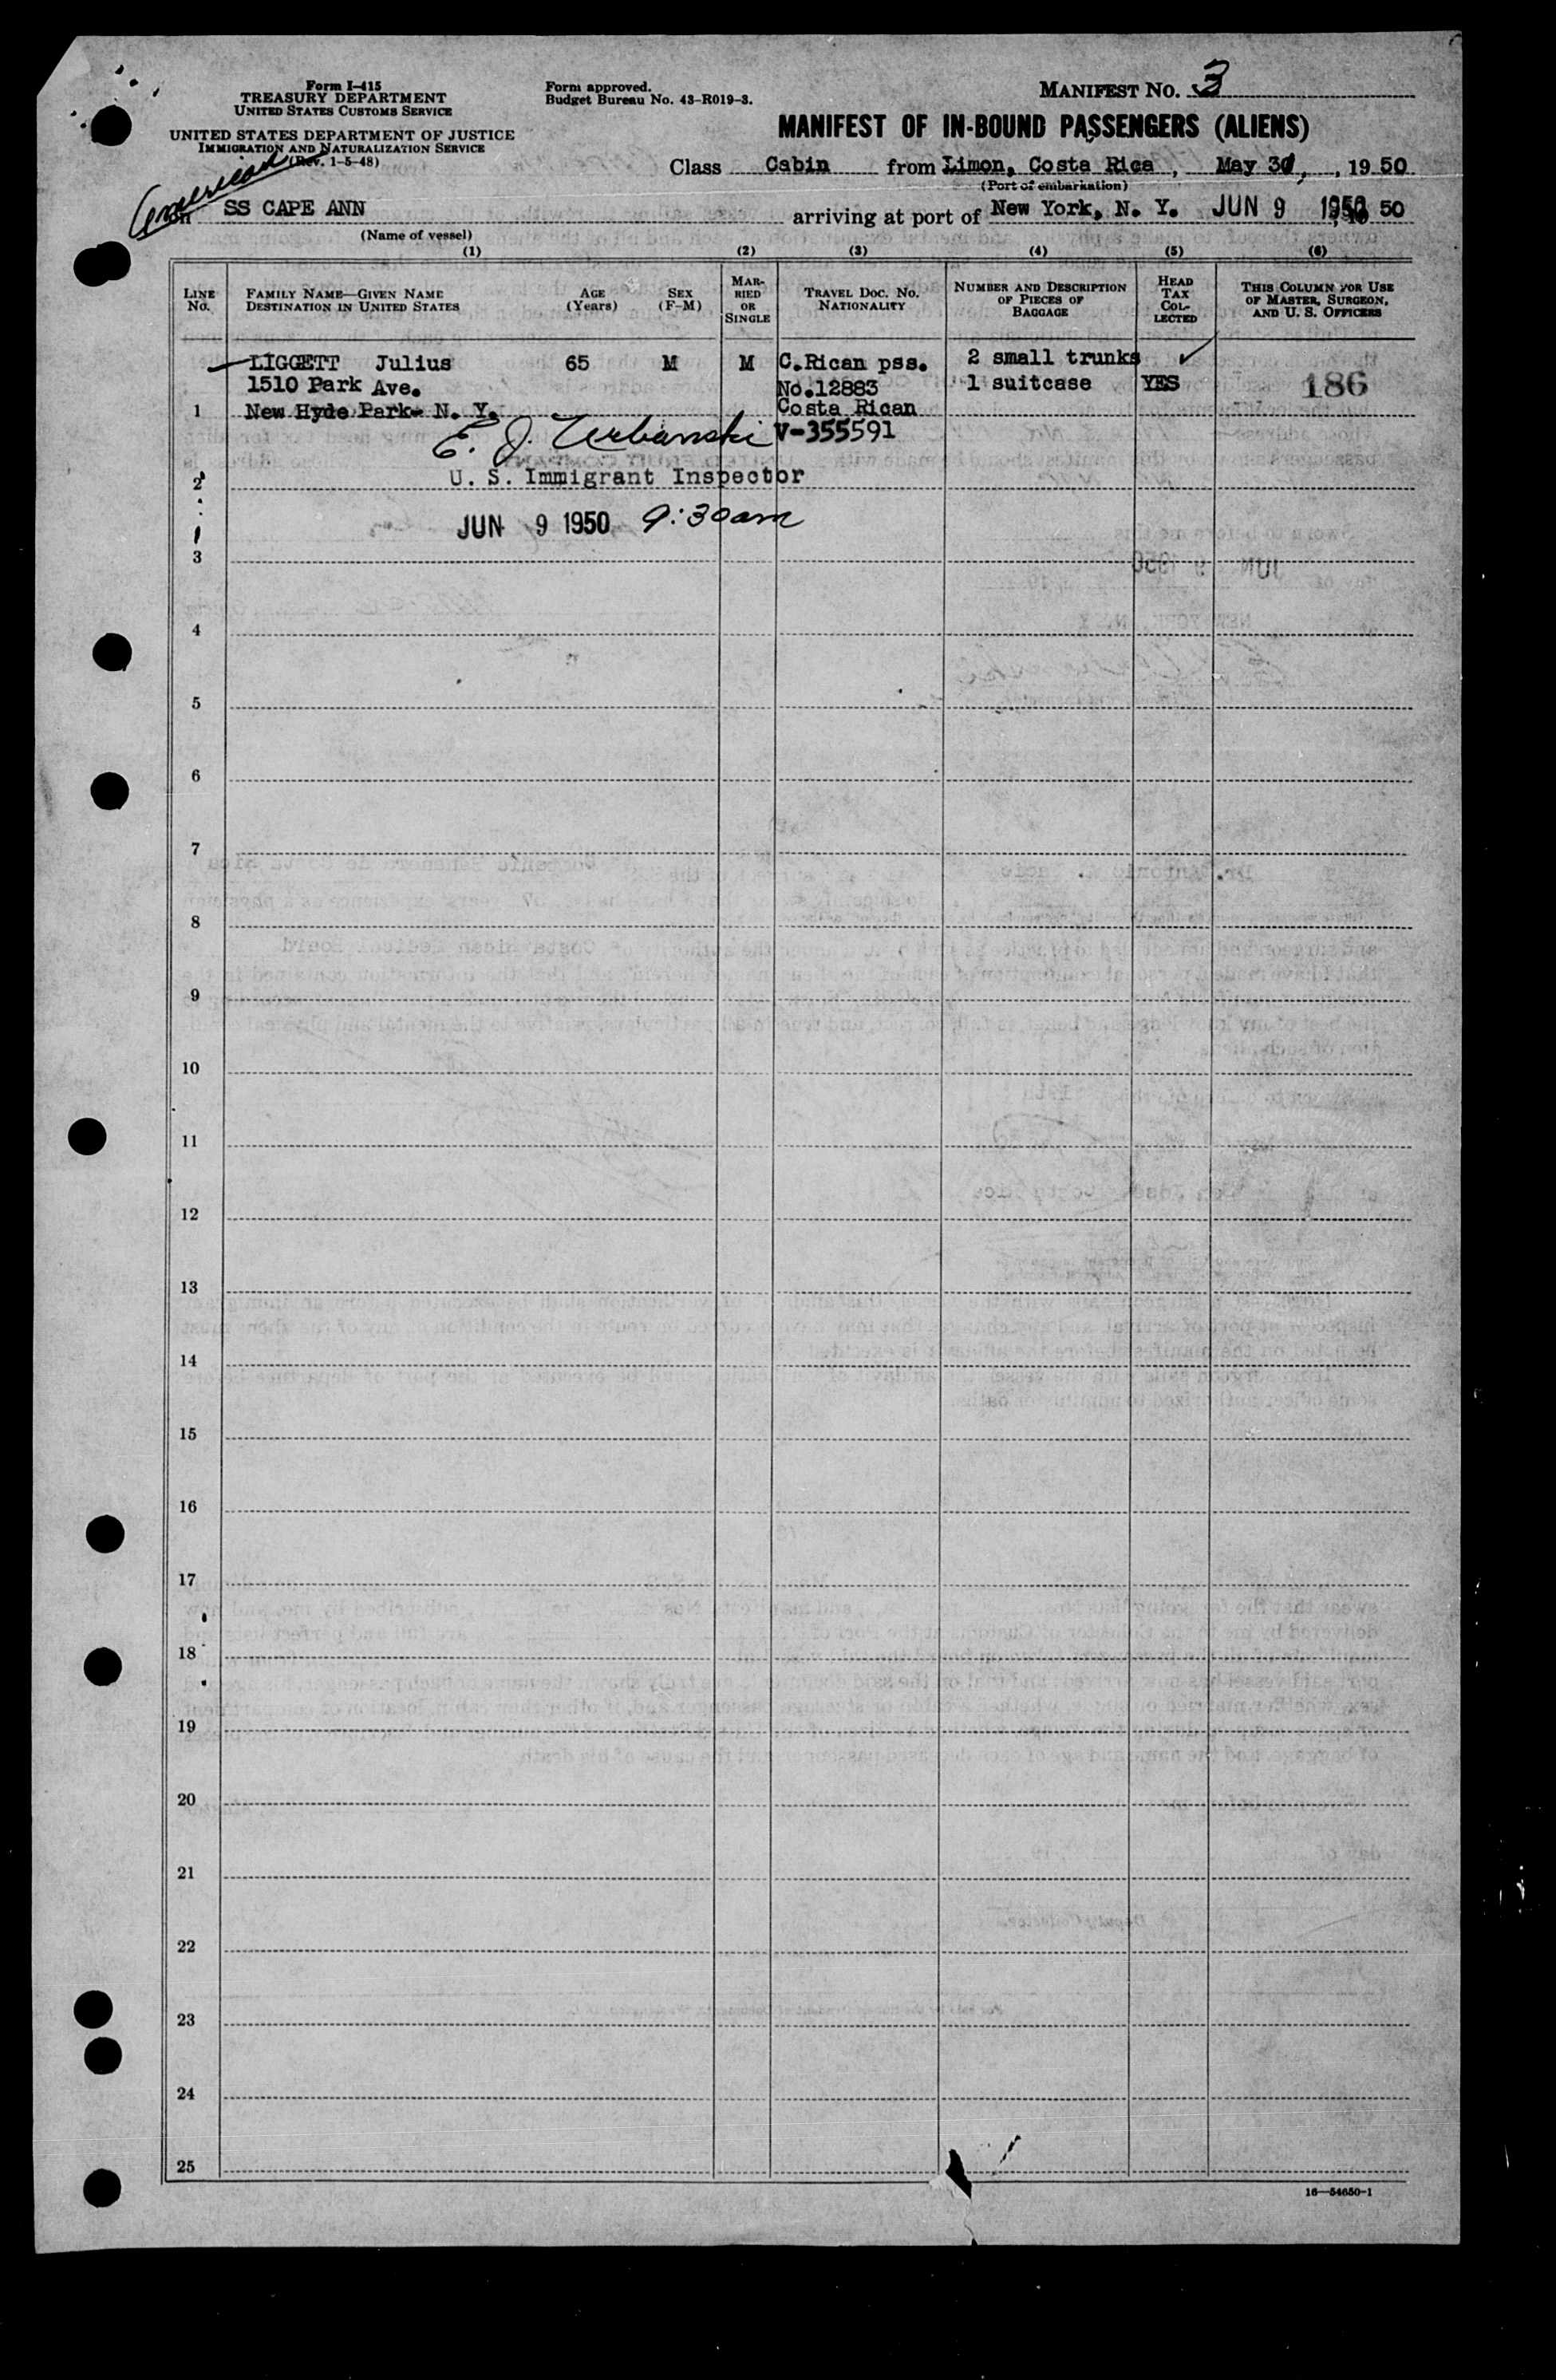 Form I-415
TREASURY DEPARTMENT
UNITED STATES CUSTOMS SERVICE
UNITED STATES DEPARTMENT OF JUSTICE
IMMIGRATION AND NATURALIZATION SERVICE
(Rev. 1-5-48)
Form approved.
Budget Bureau No. 43-R019-3.
MANIFEST NO. 3
MANIFEST OF IN-BOUND PASSENGERS (ALIENS)
Class Cabin from Limon, Costa Rica, May 31, 1950
(Port of embarkation)
American
on SS CAPE ANN arriving at port of New York, N. Y. JUN 9 1950, 19 50
(Name of vessel)
(1) (2) (3) (4) (5) (6)
LINE No.
FAMILY NAME—GIVEN NAME
DESTINATION IN UNITED STATES
AGE (Years)
SEX (F-M)
MARRIED OR SINGLE
TRAVEL DOC. NO.
NATIONALITY
NUMBER AND DESCRIPTION OF PIECES OF BAGGAGE
HEAD TAX COLLECTED
THIS COLUMN FOR USE OF MASTER, SURGEON, AND U. S. OFFICERS
LIGGETT Julius 65 M M C.Rican pss. 2 small trunks ✓
1510 Park Ave. No.12883 1 suitcase YES 186
1 New Hyde Park- N. Y. Costa Rican
E. J. Urbanski V-355591
2 U. S. Immigrant Inspector
JUN 9 1950 9:30am
3
4
5
6
7
8
9
10
11
12
13
14
15
16
17
18
19
20
21
22
23
24
25
16—54650-1